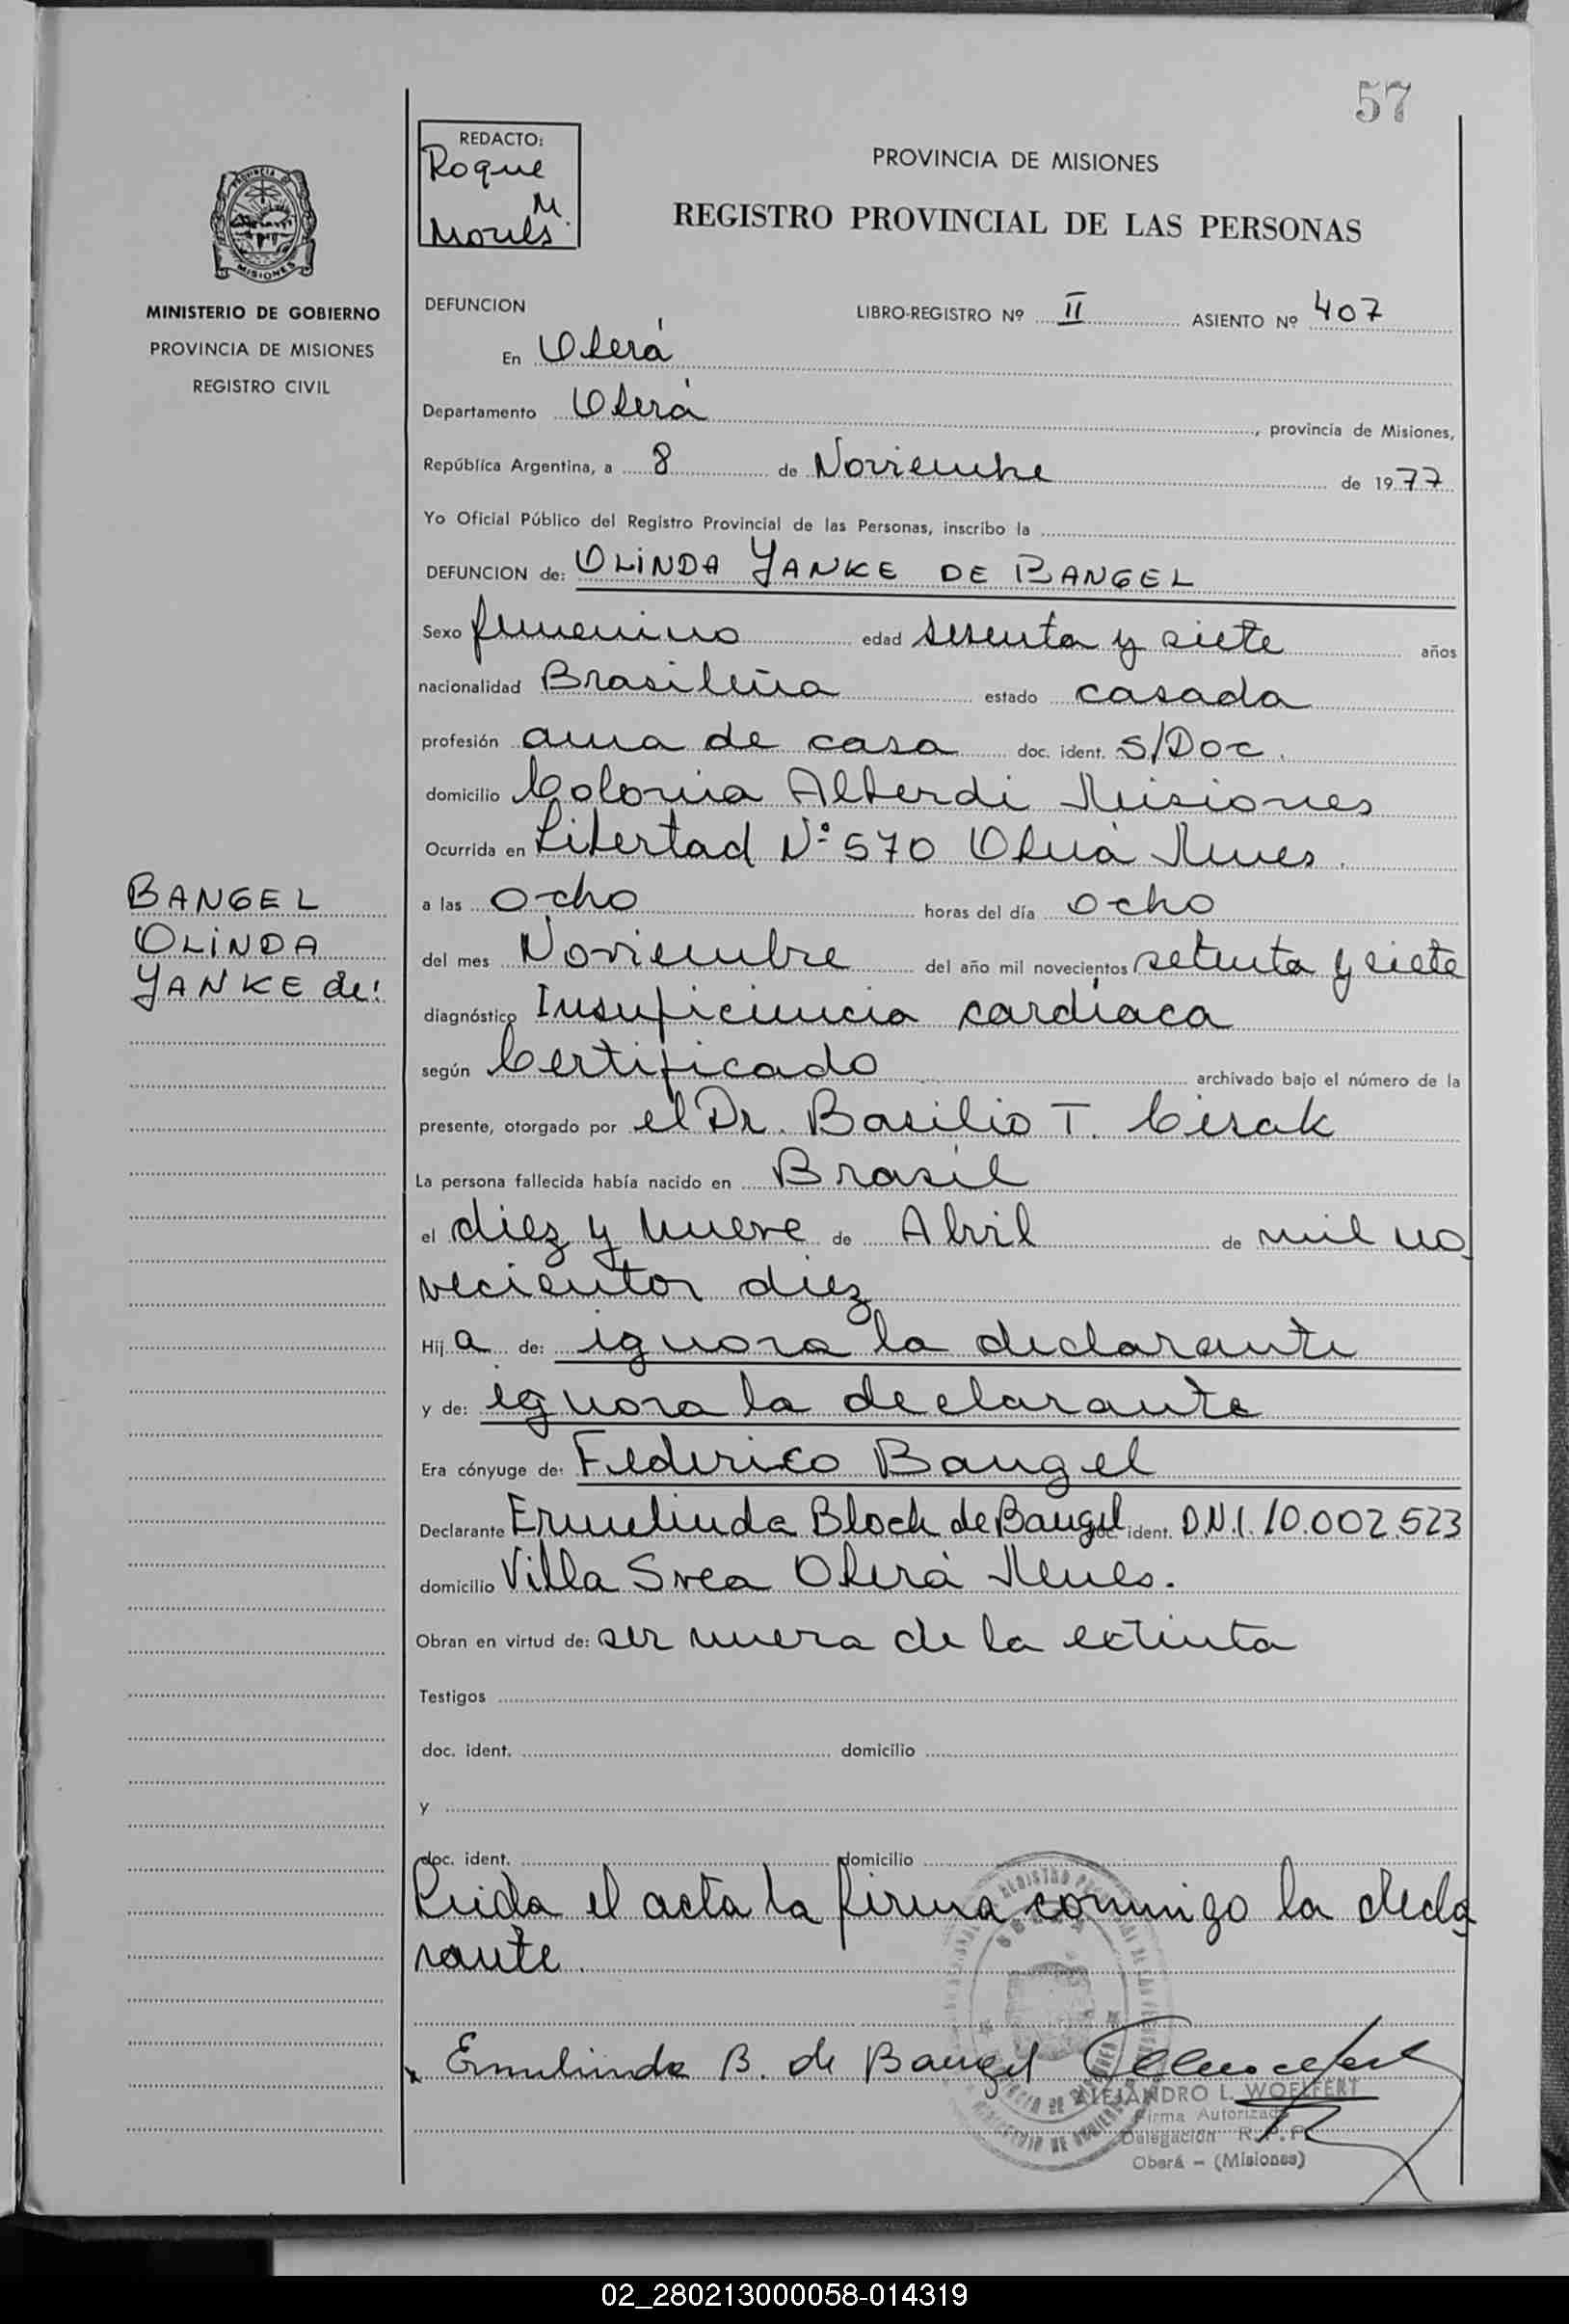 57
REDACTO:
Roque
M.
PROVINCIA DE MISIONES
REGISTRO PROVINCIAL DE LAS PERSONAS
PROVINCIA DE
MISIONES
MINISTERIO DE GOBIERNO
PROVINCIA DE MISIONES
REGISTRO CIVIL
DEFUNCION LIBRO-REGISTRO Nº II ASIENTO Nº 407
En Oberá
Departamento Oberá, provincia de Misiones,
República Argentina, a 8 de Noviembre de 1977
Yo Oficial Público del Registro Provincial de las Personas, inscribo la
DEFUNCION de: OLINDA YANKE DE BANGEL
Sexo femenino edad sesenta y siete años
nacionalidad Brasileña estado casada
profesión ama de casa doc. ident. S/Doc.
domicilio Colonia Alberdi Misiones
Ocurrida en Libertad Nº 570 Oberá Mnes.
BANGEL
OLINDA
YANKE de:
a las ocho horas del día ocho
del mes Noviembre del año mil novecientos setenta y siete
diagnóstico Insuficiencia cardíaca
según Certificado archivado bajo el número de la
presente, otorgado por el Dr. Basilio T. Cesak
La persona fallecida había nacido en Brasil
el diez y nueve de Abril de mil no
vecientos diez
Hij a de: ignora la declarante
y de: ignora la declarante
Era cónyuge de: Federico Bangel
Declarante Ermelinda Bloch de Bangel doc. ident. D.N.I. 10.002.523
domicilio Villa Svea Oberá Mnes.
Obran en virtud de: ser nuera de la extinta
Testigos
doc. ident. domicilio
y
doc. ident. domicilio
Leida el acta la firma conmigo la decla
rante
Ermelinda B. de Bangel
ALEJANDRO L. WOELFERT
Firma Autorizada
Delegación R.P.P.
Oberá - (Misiones)
02_280213000058-014319